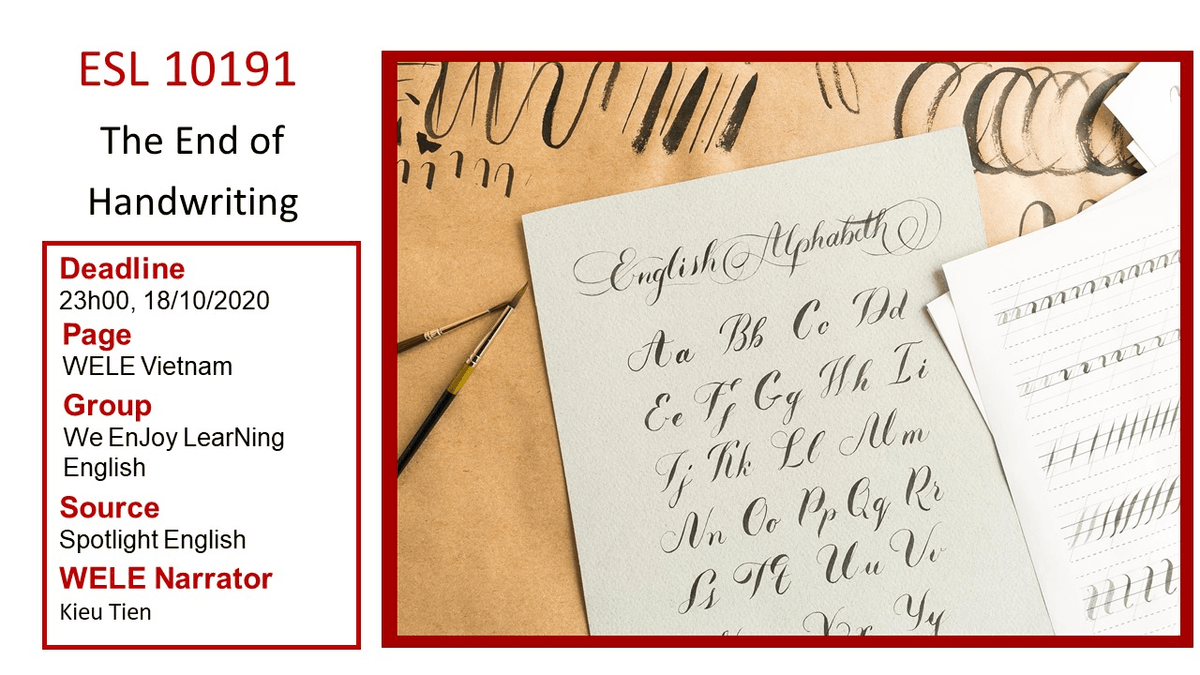 ESL 10191
The End of
Handwriting
Deadline
23h00, 18/10/2020
Page
WELE Vietnam
Group
We EnJoy LearNing
English
Source
Spotlight English
WELE Narrator
Kieu Tien
English Alphabeth
Aa Bb Cc Dd
Ee Ff Gg Hh Ii
Jj Kk Ll Mm
Nn Oo Pp Qq Rr
Ss Tt Uu Vv
Xx Yy